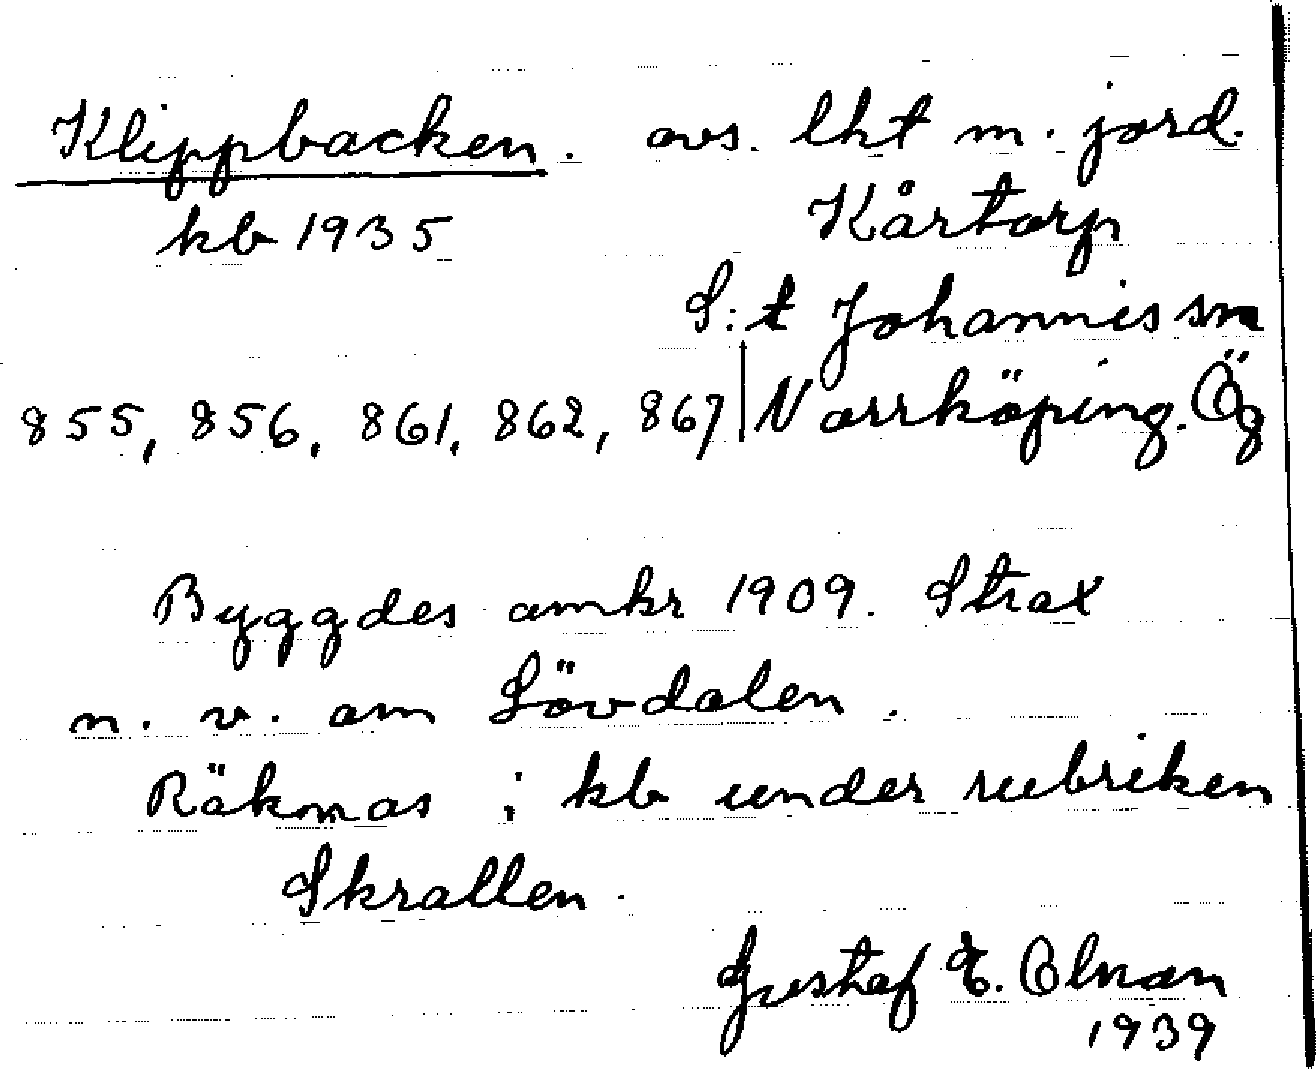 Klippbacken. avs. lht m. jord.
kb 1935 Kårtorp
S:t Johannis sn
855, 856, 861, 862, 867 | Norrköping. Ög
Byggdes omkr 1909. Strax
n. v. om Lövdalen.
Räknas i kb under rubriken
Skrallen.
Gustaf E. Olman
1939